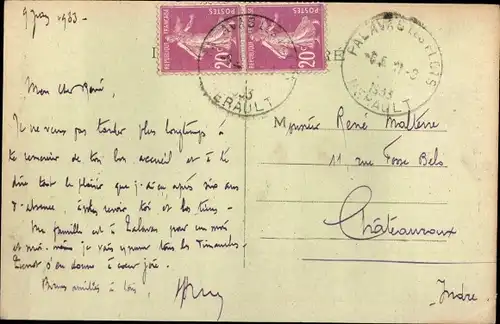 9 juin 1933 -
Mon cher René,
Je ne veux pas tarder plus longtemps à
te remercier de ton bon accueil et à te
dire tout le plaisir que j'ai eu, après six ans
d'absence, à revoir toi et les tiens -
Ma famille est à Palavas pour un mois
et moi-même je vais y passer tous les Dimanches -
s'en donne à cœur joie.
Bonnes amitiés à tous,
REPUBLIQUE FRANÇAISE
POSTES
20c
REPUBLIQUE FRANÇAISE
POSTES
20c
HERAULT
PALAVAS LES FLOTS
1933
HERAULT
Monsieur René Malterre
11, rue Fosse Belo
Châteauroux
Indre